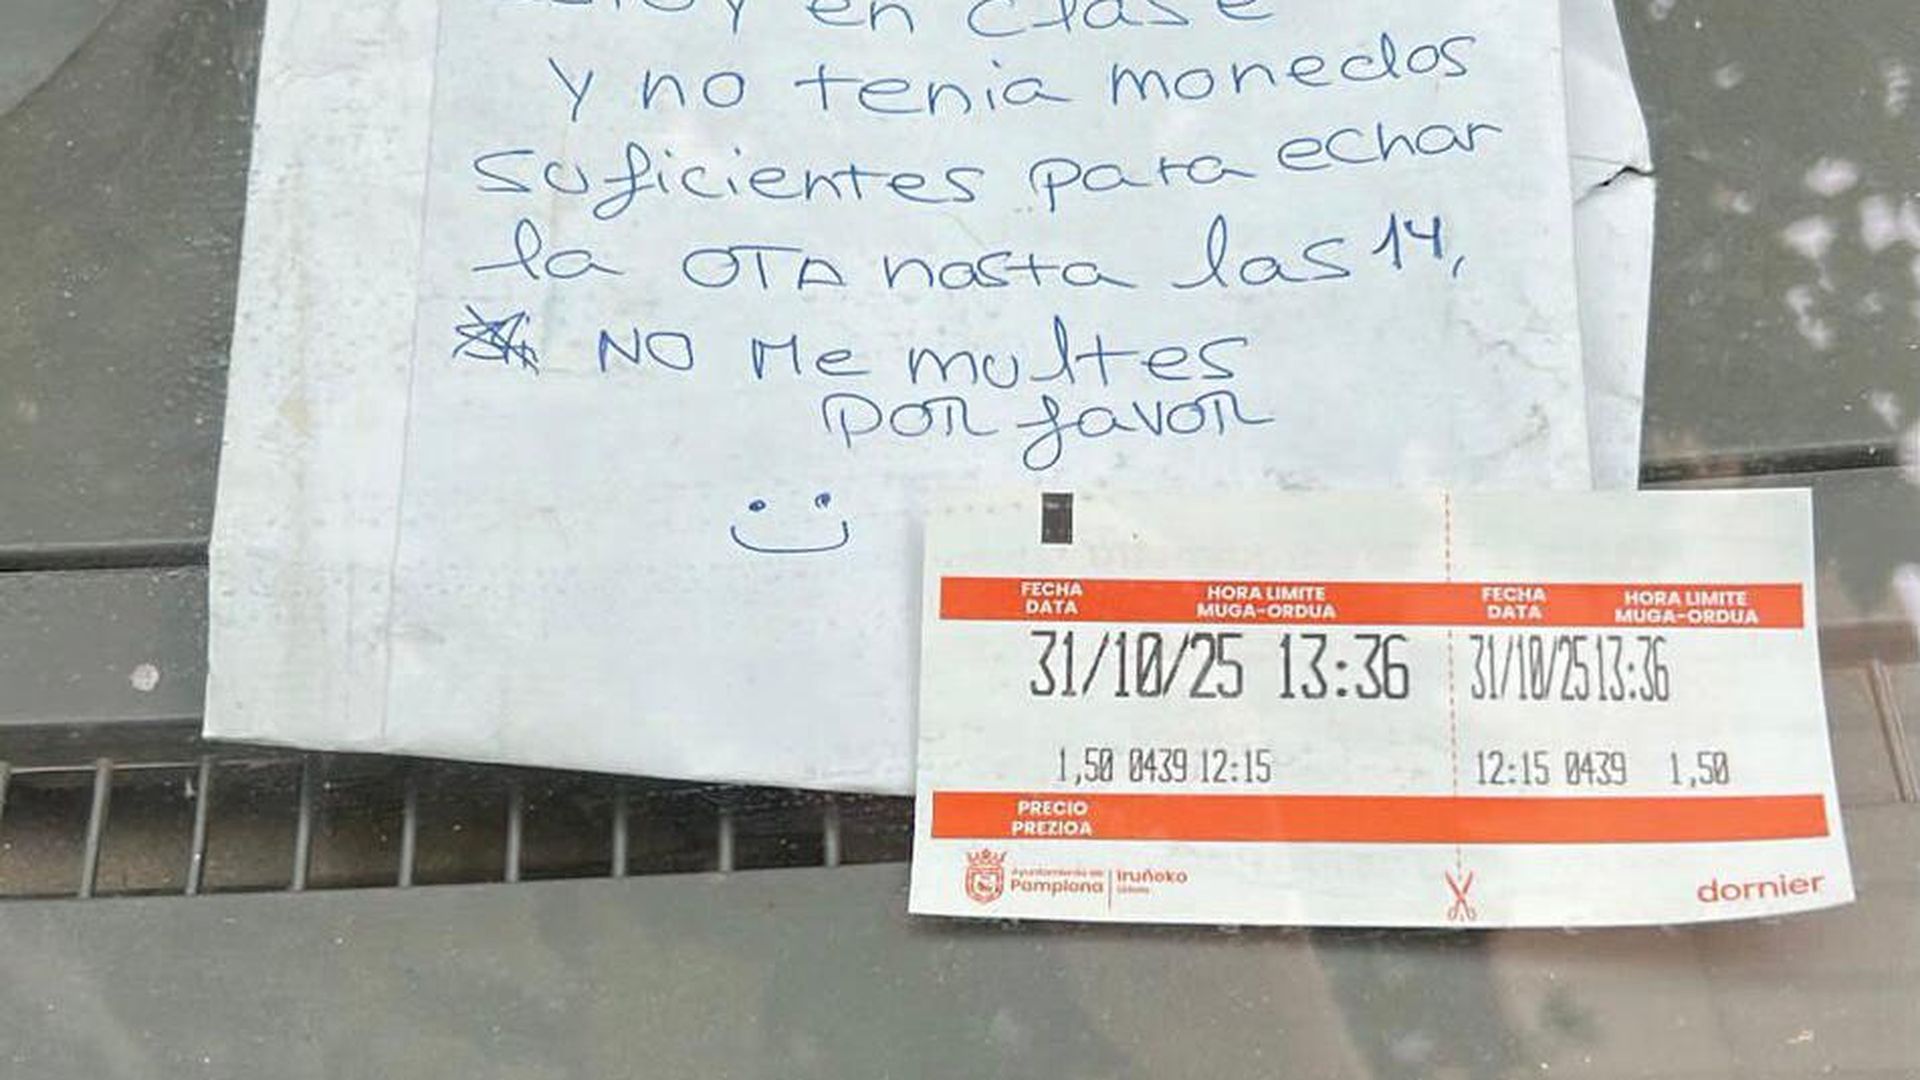 y en clase
y no tenia monedas
suficientes para echar
la OTA hasta las 14,
NO Me multes
por favor
FECHA DATA HORA LIMITE MUGA-ORDUA FECHA DATA HORA LIMITE MUGA-ORDUA
31/10/25 13:36 31/10/25 13:36
1,50 0439 12:15 12:15 0439 1,50
PRECIO
PREZIOA
Ayuntamiento de
Pamplona
Iruñeko
Udala
dornier